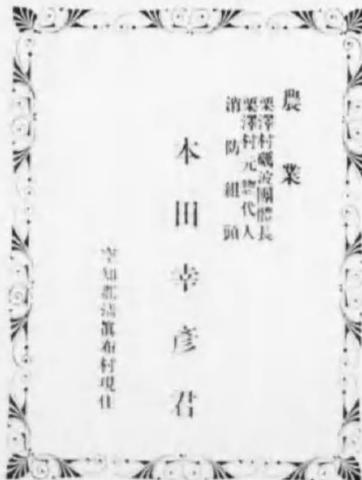 農業
栗澤村礪波團體長
栗澤村元總代人
消防組頭
本田幸彥君
空知郡清眞布村現住